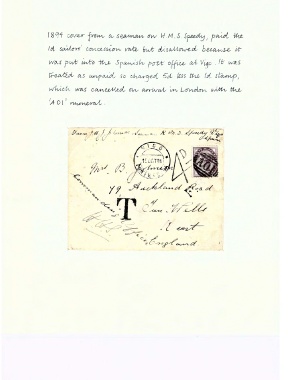 1894 cover from a seaman on H.M.S Speedy, paid the
1d sailors' concession rate but disallowed because it
was put into the Spanish post office at Vigo. It was
treated as unpaid ie charged 5d less the 1d stamp,
which was cancelled on arrival in London with the
'A01' numeral.
H.M.S Speedy Vigo
Spain
VIGO
Mrs. B
79 Auckland Road
Tun. Wells
T
Kent
England